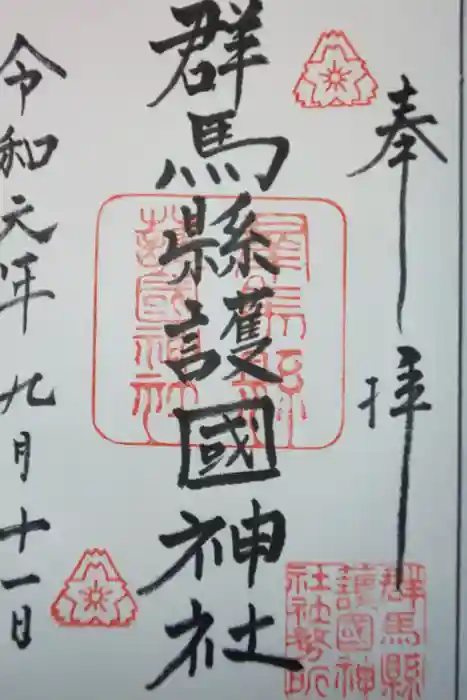 奉拝
群馬縣護國神社
群馬縣護國神社
令和元年九月十一日
群馬縣
護國神
社社務所